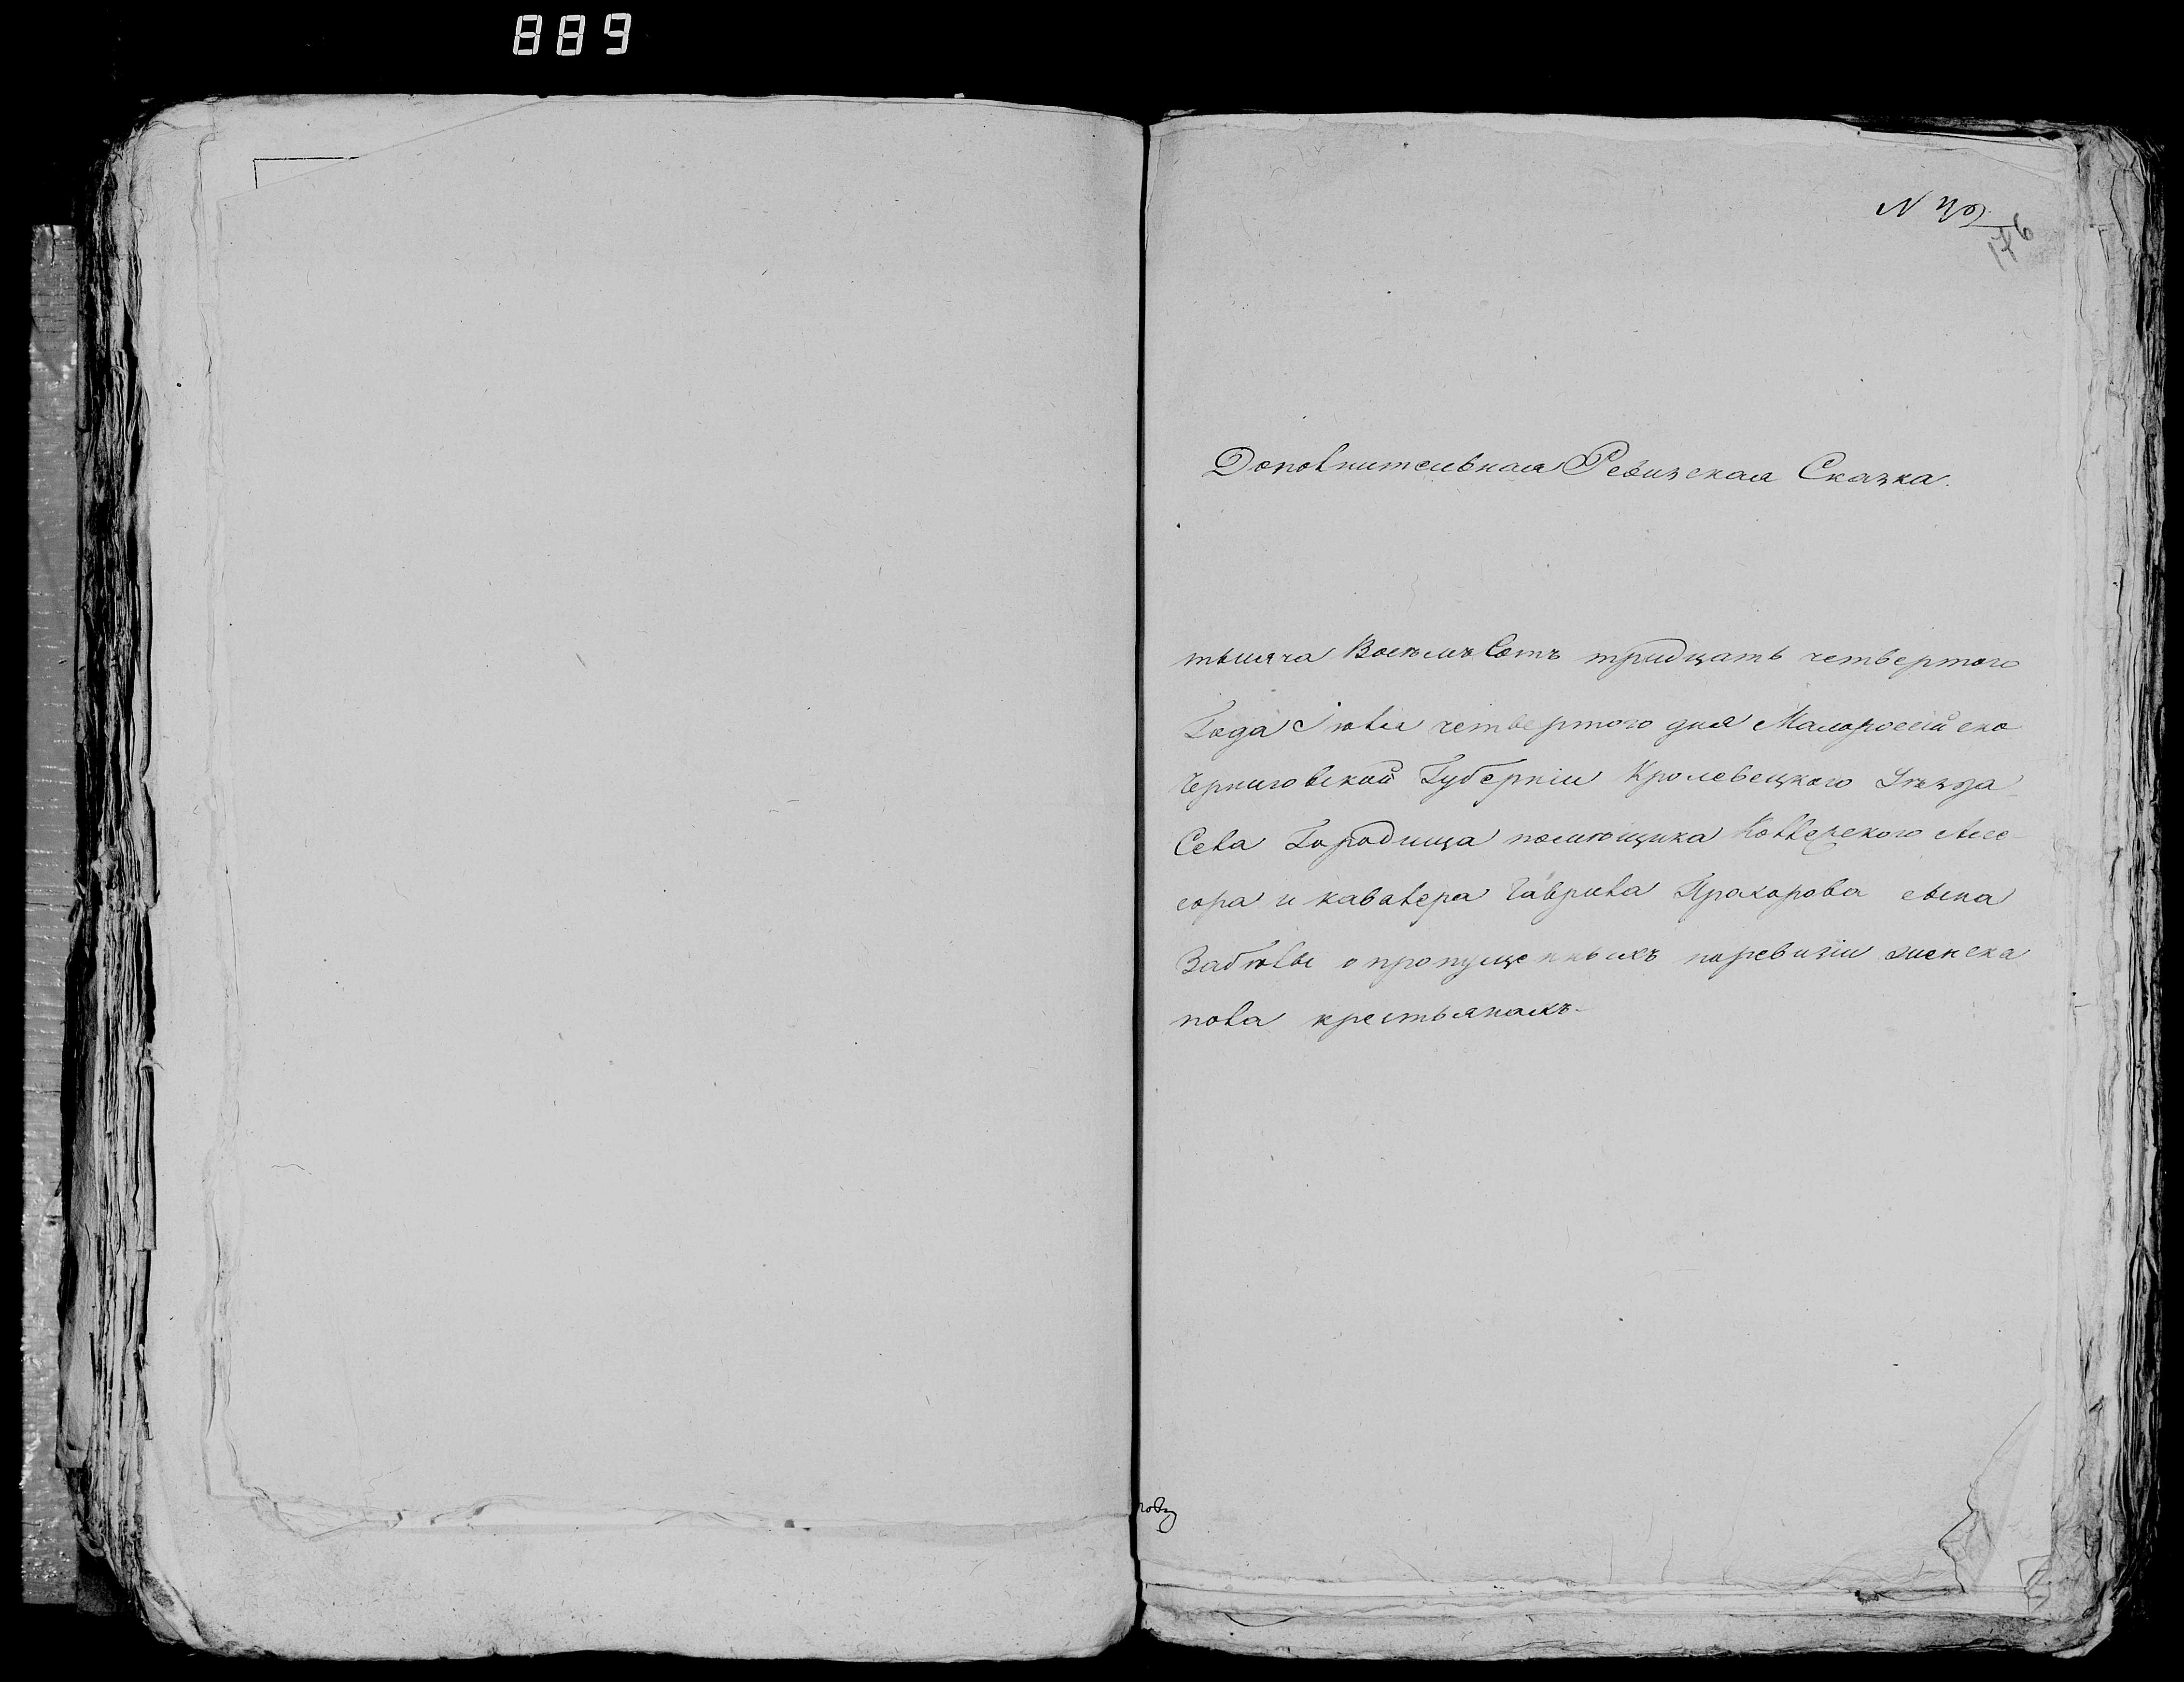 889
N
176
Дополнительная Ревизская Сказка.
тысяча Восемъ Сотъ тридцать четвертого
Года Июля четвертого дня Малоросcійско
Черниговской Губерніи Кролевецкого Уѣзда
Села Городища помющика Коллезского Ассе-
сора и кавалера Гаврила Прохорова сына
Забѣлы о пропущенныхъ поревизіи женска
пола крестьянахъ.